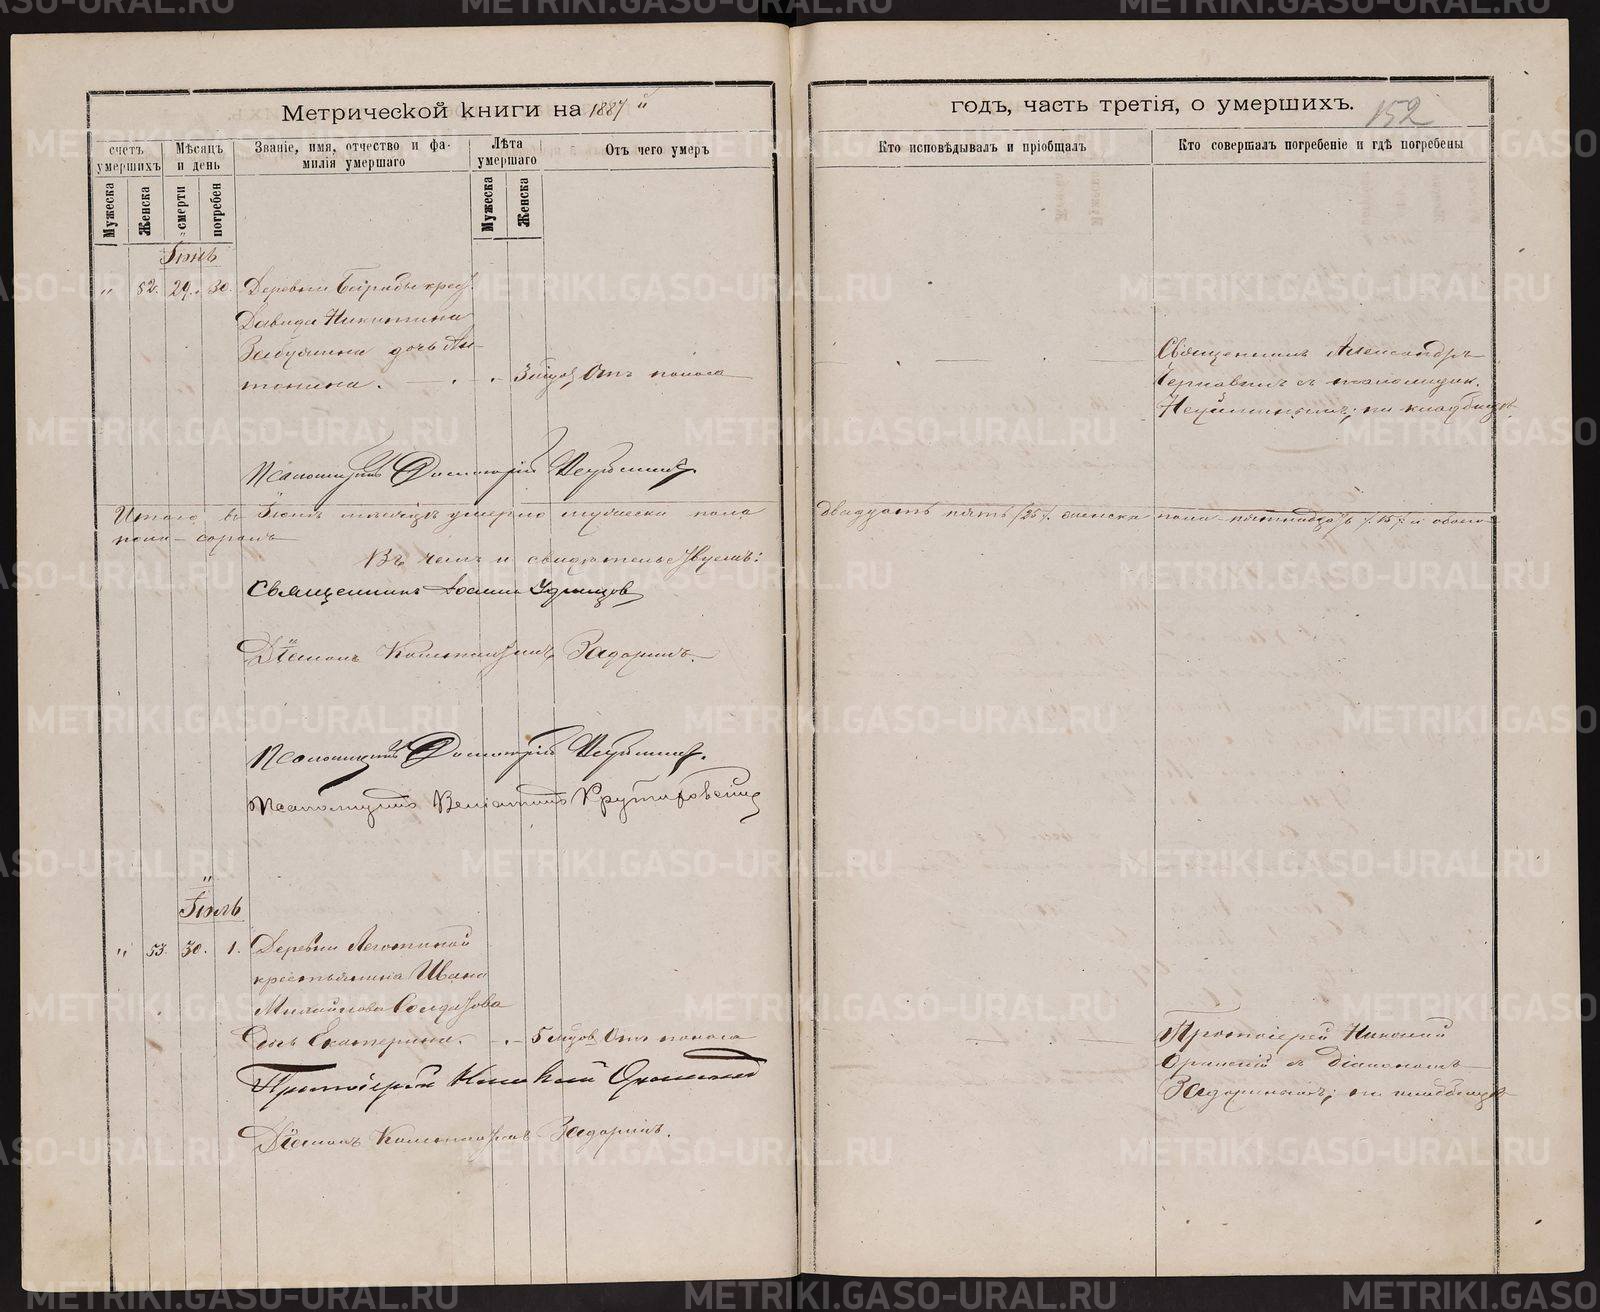 Метрической книги на 1887 й
годъ, часть третія, о умершихъ.
152
счетъ умершихъ
Мѣсяцъ и день
Званіе, имя, отчество и фамилія умершаго
Лѣта умершаго
Отъ чего умеръ
Кто исповѣдывалъ и пріобщалъ
Кто совершалъ погребеніе и гдѣ погребены
Мужеска
Женска
смерти
погребен
Мужеска
Женска
Іюнь
" 52. 29. 30. Деревни крест.
Давида Никитина
дочь Ан-
тонина. 3 Отъ поноса
Священникъ Александръ
съ псаломщик.
Неуйминымъ; на кладбищѣ
Псаломщикъ Димитрій Неуйминъ
Итого въ Іюнѣ мѣсяцѣ умерло мужеска пола
двадцать пять /25/. женска пола пятнадцать /15/ а обоего
пола – сорокъ
Въ чемъ и свидѣтельствуемъ:
Священникъ Іоаннъ Удинцовъ
Діаконъ Константинъ Задоринъ.
Псаломщикъ Димитрій Неуйминъ.
Псаломщикъ Веніаминъ
Іюль
" 53. 30. 1. Деревни
крестьянина Ивана
Михайлова Солдатова
дочь Екатерина. 5 Отъ поноса
Протоіерей Николай
съ діакономъ
Задоринымъ; на кладбищѣ
Протоіерей Николай
Діаконъ Константинъ Задоринъ.
METRIKI.GASO-URAL.RU